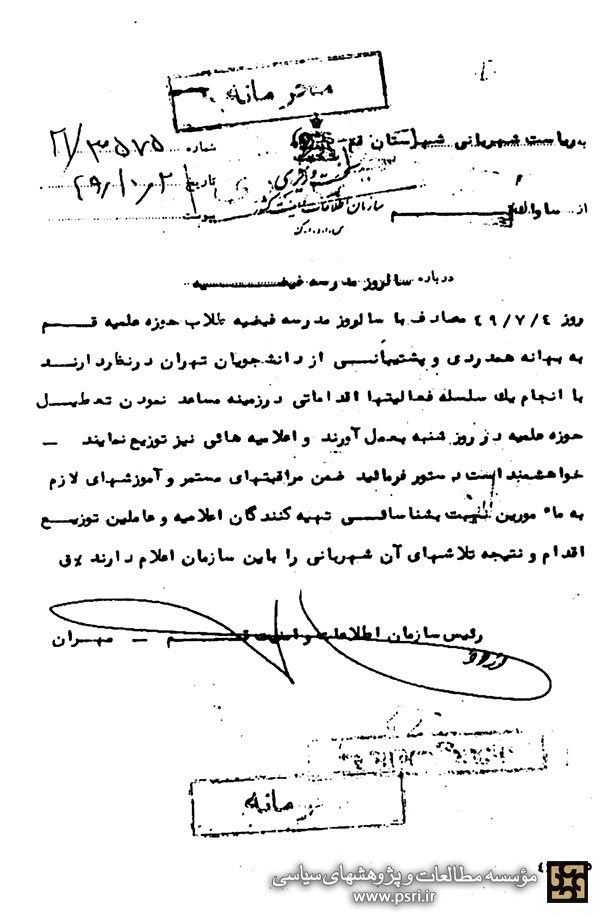 محرمانه
بریاست شهربانی شهرستان قم
شماره ۲۱/۳۵۷۵
نخست وزیری
تاریخ
سازمان اطلاعات و امنیت کشور
از ساواک قم
پیوست
س.ا.و.ا.ک
درباره سالروز مدرسه فیضیه
روز ۴۹/۷/۴ مصادف با سالروز مدرسه فیضیه طلاب حوزه علمیه قم
به بهانه همدردی و پشتیبانی از دانشجویان تهران درنظردارند
با انجام یک سلسله فعالیتها اقداماتی درزمینه مساعد نمودن تعطیل
حوزه علمیه در روز شنبه بعمل آورند و اعلامیه هائی نیز توزیع نمایند –
خواهشمند است دستور فرمائید ضمن مراقبتهای مستمر و آموزشهای لازم
به مامورین نسبت بشناسائی تهیه کنندگان اعلامیه و عاملین توزیع
اقدام و نتیجه تلاشهای آن شهربانی را باین سازمان اعلام دارند
رئیس سازمان اطلاعات و امنیت قم – مهران
محرمانه
مؤسسه مطالعات و پژوهشهای سیاسی
www.psri.ir